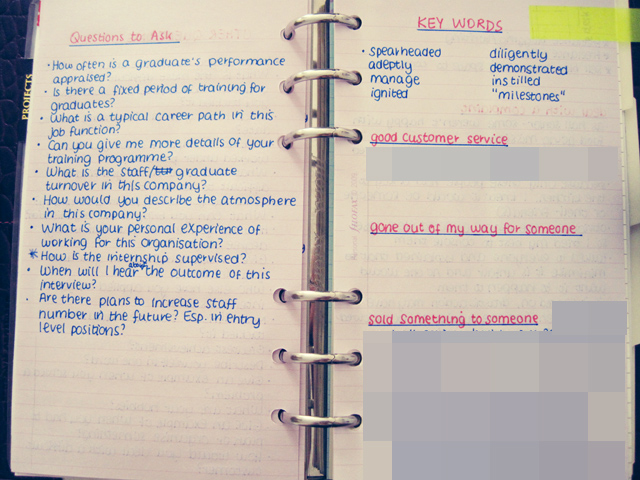 PROJECTS
Questions to Ask
• How often is a graduate's performance
appraised?
• Is there a fixed period of training for
graduates?
• What is a typical career path in this
job function?
• Can you give me more details of your
training programme?
• What is the staff/ graduate
turnover in this company?
• How would you describe the atmosphere
in this company?
• What is your personal experience of
working for this organisation?
* How is the internship supervised?
• When will I hear about the outcome of this
interview?
• Are there plans to increase staff
number in the future? Esp. in entry
level positions?
KEY WORDS
• spearheaded diligently
adeptly demonstrated
manage instilled
ignited "milestones"
good customer service
gone out of my way for someone
sold something to someone